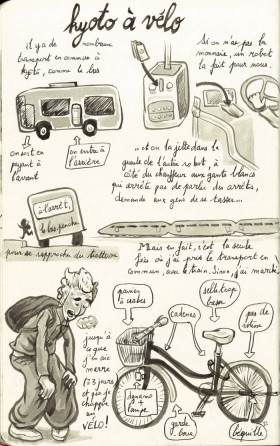 kyoto à vélo
il y a de nombreux
transport en commun à
kyoto, comme le bus
Si on n'a pas la
monnaie, un robot
la fait pour nous.
on sort en
payant à
l'avant
on entre à
l'arrière
...et on la jette dans la
gueule de l'autre robot, à
côté du chauffeur aux gants blancs
qui arrête pas de parler des arrêts,
demande aux gens de se tasser...
à l'arrêt,
le bus penche
pour se rapprocher du trottoir
Mais en fait, c'est la seule
fois où j'ai pris le transport en
commun, avec le train. Sinon, j'ai marché
jusqu'à
ce que
j'en aie
marre
et
jours
et pas de
chopper
un
VÉLO!
panier
à
cadenas
selle trop
basse
pas de
dynamo
+
lampe
garde
boue
béquille